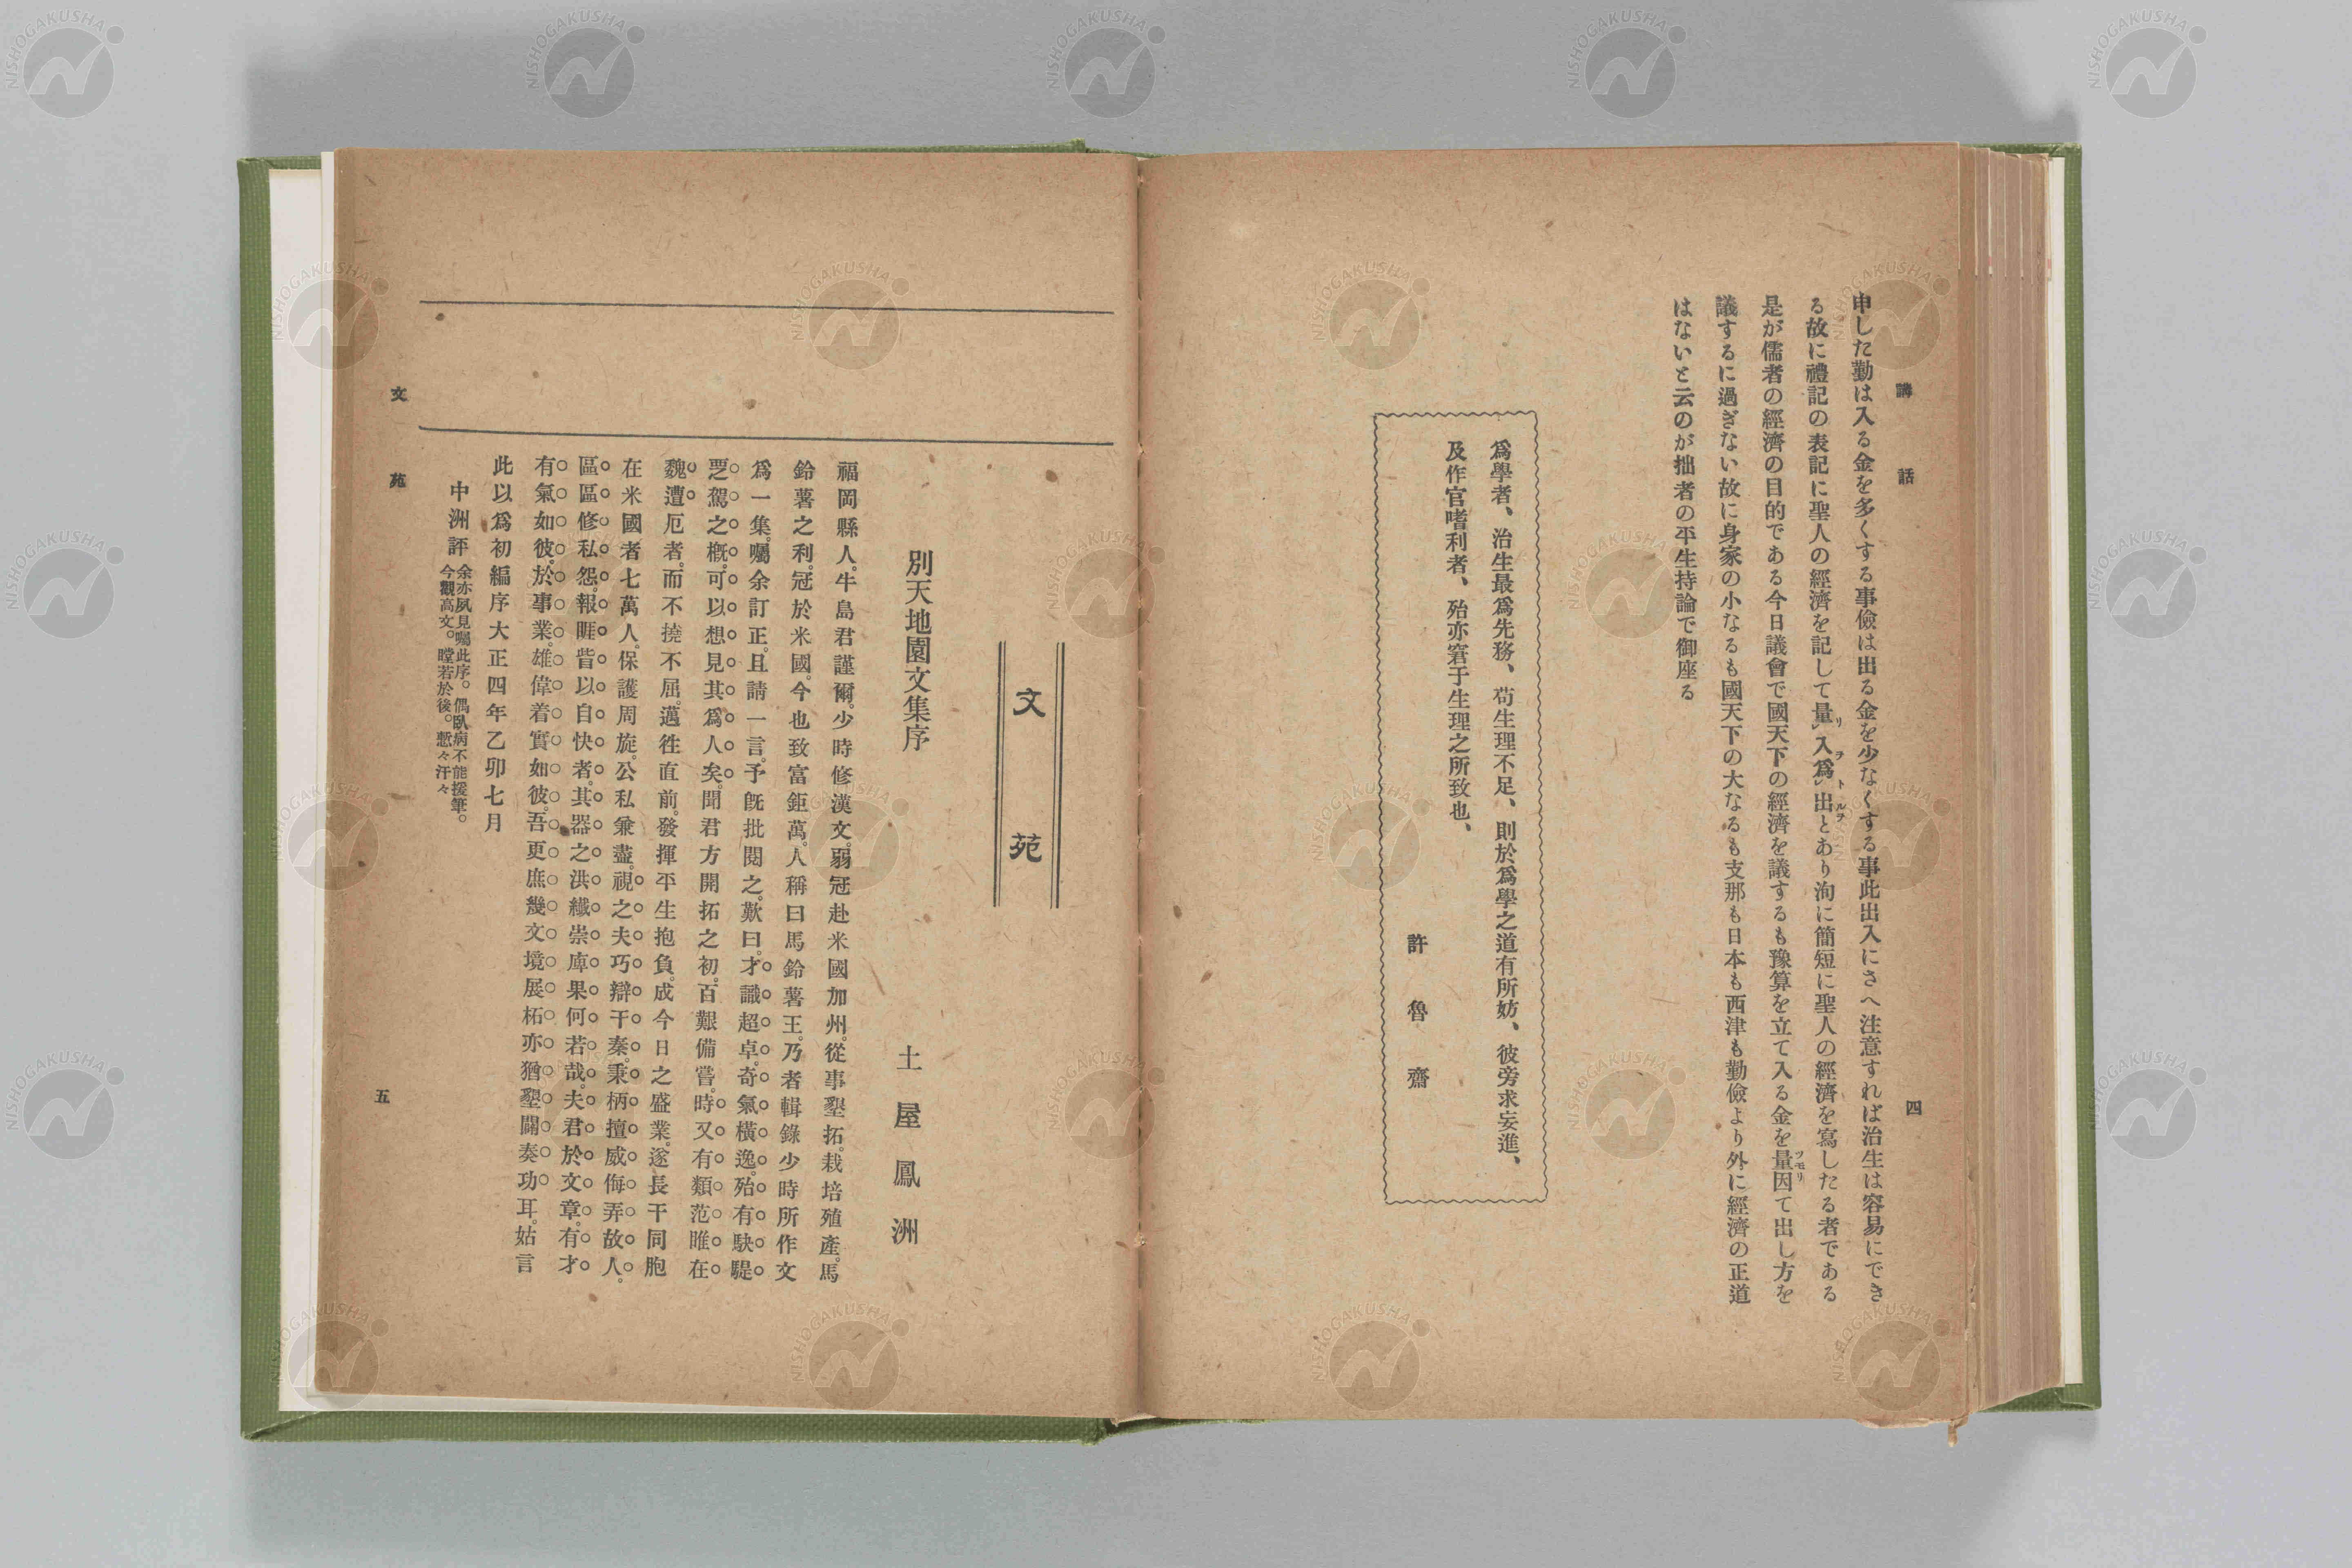 講話
四
申した勤は入る金を多くする事儉は出る金を少なくする事此出入にさへ注意すれば治生は容易にでき
る故に禮記の表記に聖人の經濟を記して量入爲出とあり洵に簡短に聖人の經濟を寫したる者である
是が儒者の經濟の目的である今日議會で國天下の經濟を議するも豫算を立て入る金を量因て出し方を
議するに過ぎない故に身家の小なるも國天下の大なるも支那も日本も西津も勤儉より外に經濟の正道
はないと云のが拙者の平生持論で御座る
爲學者、治生最爲先務、苟生理不足、則於爲學之道有所妨、彼旁求妄進、
及作官嗜利者、殆亦窘于生理之所致也、
許魯齋
文苑
別天地園文集序
土屋鳳洲
福岡縣人。牛島君謹爾。少時修漢文。弱冠赴米國加州。從事墾拓。栽培殖產。馬
鈴薯之利。冠於米國。今也致富鉅萬。人稱曰馬鈴薯王。乃者輯錄少時所作文
爲一集。囑余訂正。且請一言。予既批閱之。歎曰。才識超卓。奇氣橫逸。殆有駃騠
覂駕之概。可以想見其爲人矣。聞君方開拓之初。百艱備嘗。時又有類范睢在
魏遭厄者。而不撓不屈。邁徃直前。發揮平生抱負。成今日之盛業。遂長干同胞
在米國者七萬人。保護周旋。公私兼盡。視之夫巧辯干秦。秉柄擅威侮弄故人。
區區修私怨。報睚眥以自快者。其器之洪纖崇庳果何若哉。夫君於文章。有才
有氣如彼。於事業。雄偉着實如彼。吾更庶幾文境展柘亦猶墾闢奏功耳。姑言
此以爲初編序大正四年乙卯七月
中洲評 余亦夙見囑此序。偶臥病不能援筆。
今觀高文。瞠若於後。慙々汗々
文苑
五
NISHOGAKUSHA